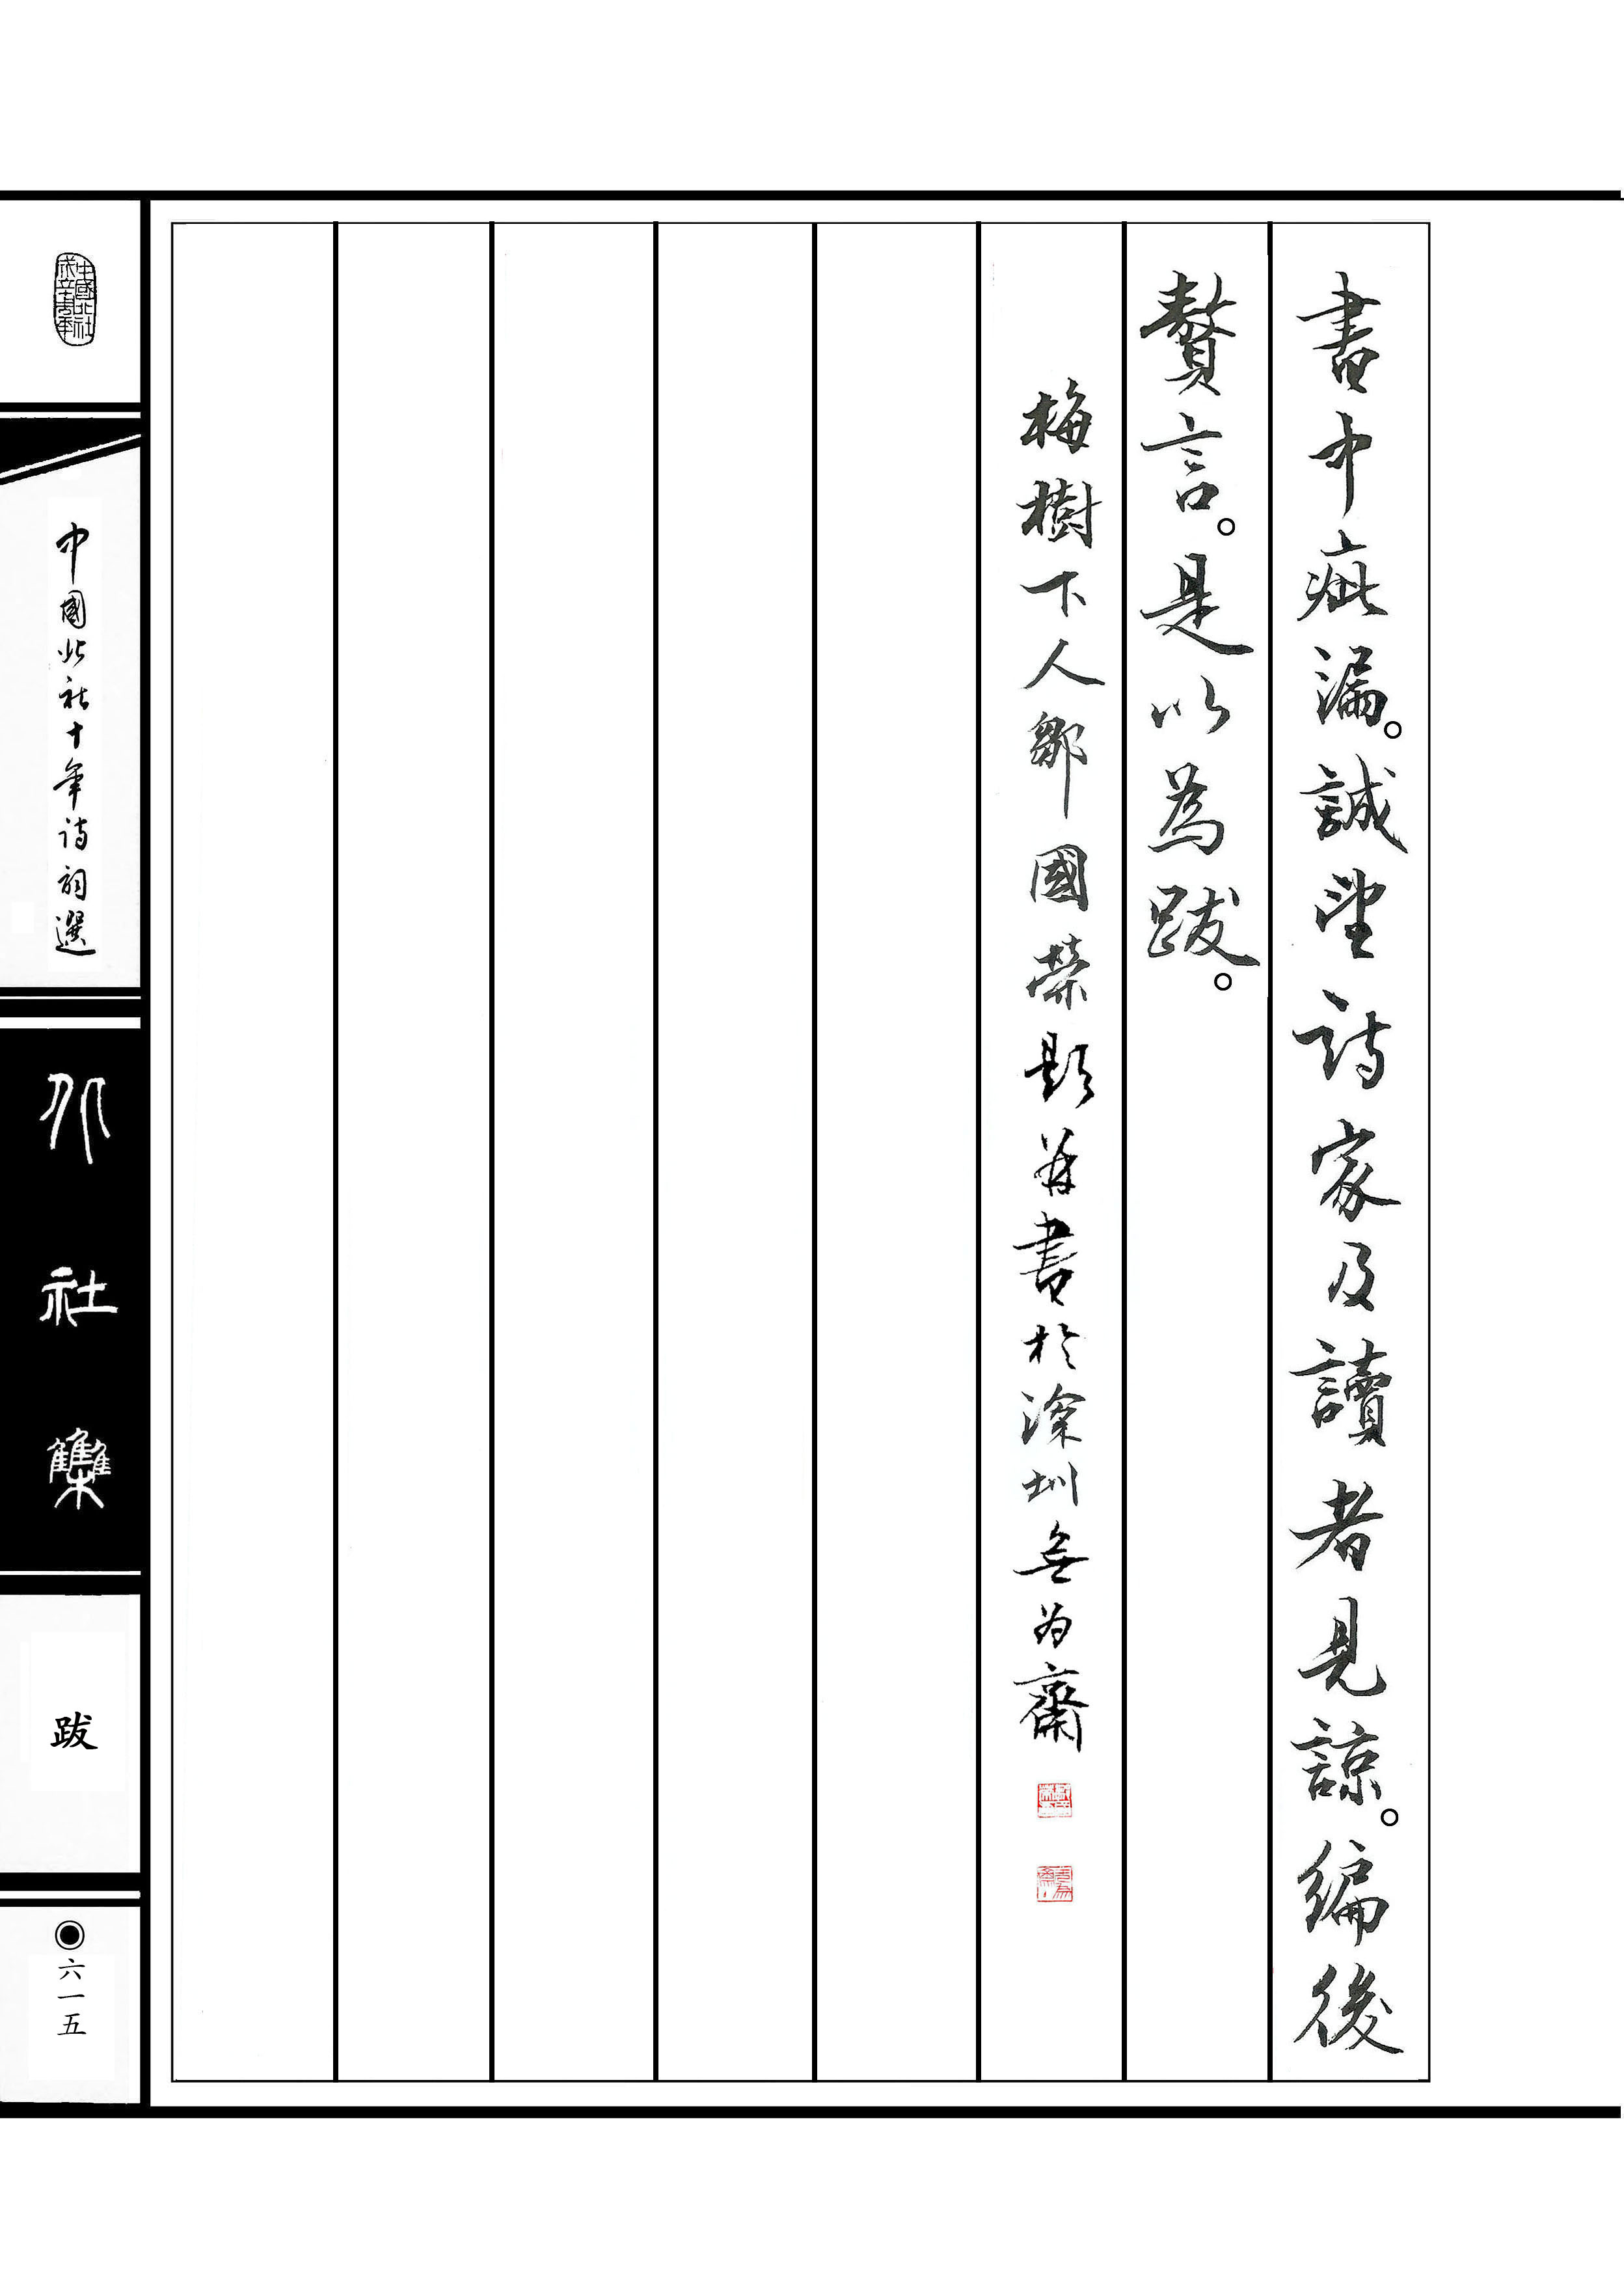 書中疵漏。誠望詩家及讀者見諒。編後
贅言。是以為跋。
梅樹下人鄒國榮題并書於深圳無为齋
中國北社
成立十周年
中國北社十年詩詞選
北社集
跋
六一五